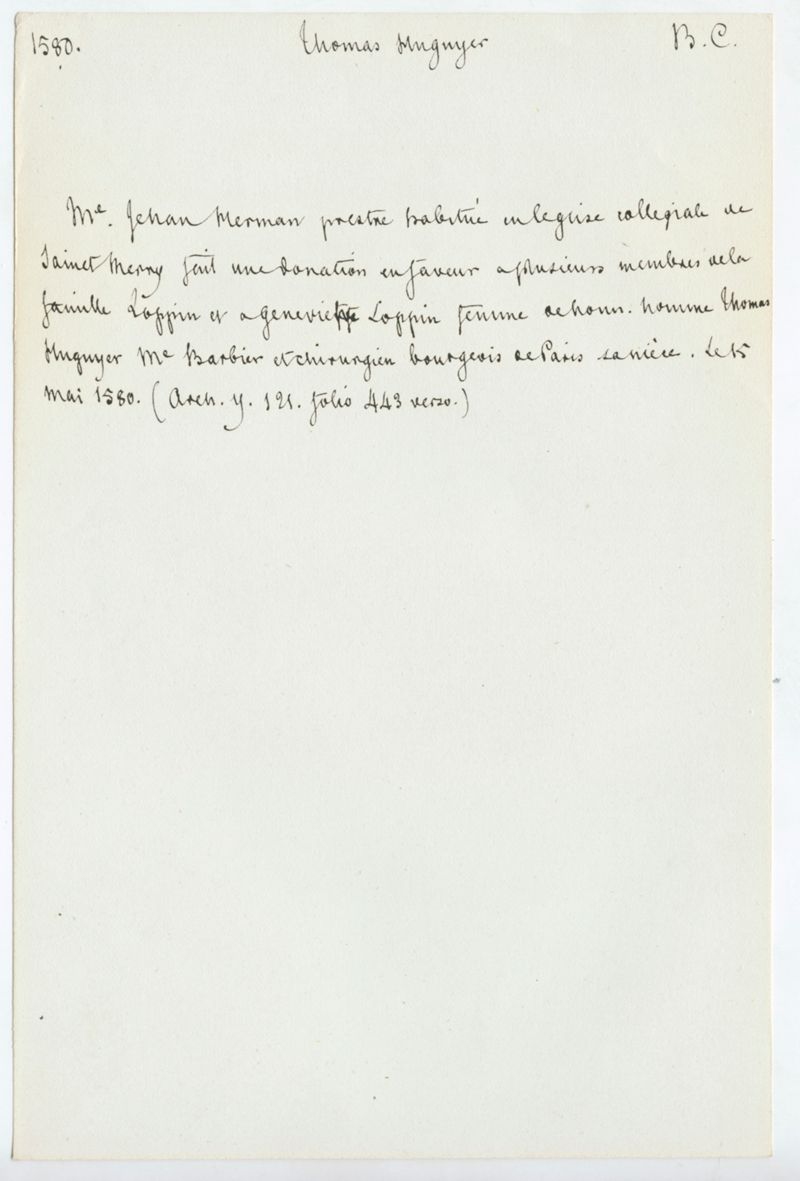 1580. Thomas Huguyer B. C.
Me. Jehan Herman prestre habitué en leglise collegiale de
Sainct Merry fait une donation en faveur a plusieurs membres de la
famille Loppin et a Geneviefve Loppin femme de honn. homme Thomas
Huguyer Me Barbier et chirurgien bourgeois de Paris sa niéce. Le 15
Mai 1580. (Arch. Y. 121. folio 443 verso.)